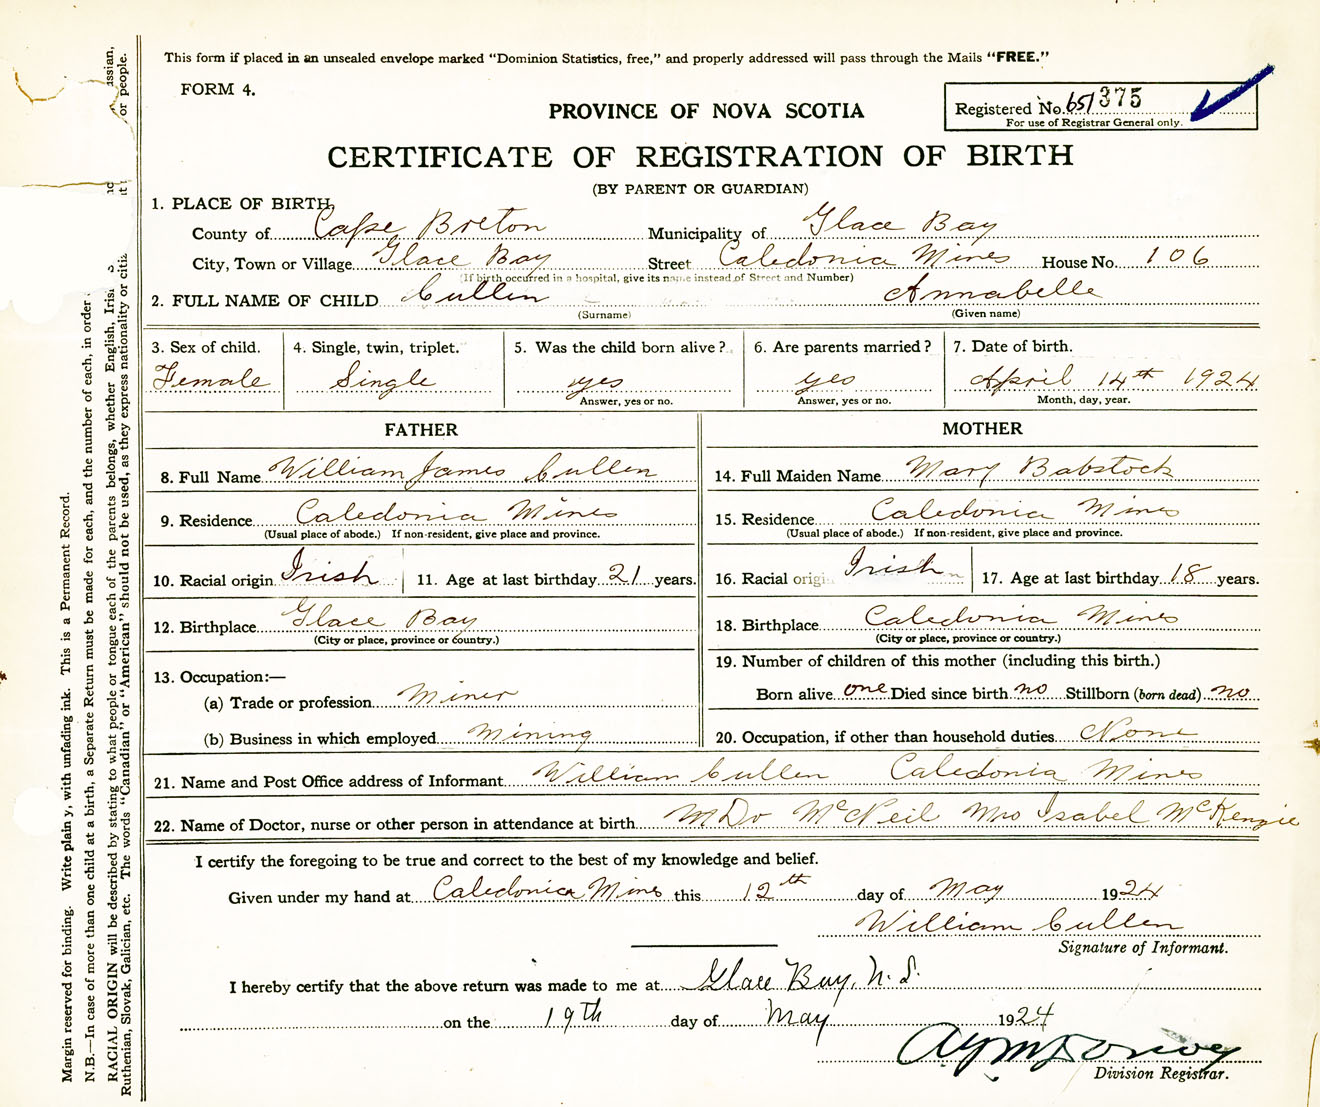 This form if placed in an unsealed envelope marked “Dominion Statistics, free,” and properly addressed will pass through the Mails “FREE.”
FORM 4.
Registered No. 651375
For use of Registrar General only.
PROVINCE OF NOVA SCOTIA
CERTIFICATE OF REGISTRATION OF BIRTH
(BY PARENT OR GUARDIAN)
1. PLACE OF BIRTH,
County of Cape Breton Municipality of Glace Bay
City, Town or Village Glace Bay Street Caledonia Mines House No. 106
(If birth occurred in a hospital, give its name instead of Street and Number)
2. FULL NAME OF CHILD Cullen Annabelle
(Surname) (Given name)
3. Sex of child. 4. Single, twin, triplet. 5. Was the child born alive? 6. Are parents married? 7. Date of birth.
Female Single yes yes April 14th 1924
Answer, yes or no. Answer, yes or no. Month, day, year.
FATHER MOTHER
8. Full Name William James Cullen 14. Full Maiden Name Mary Babstock
9. Residence Caledonia Mines 15. Residence Caledonia Mines
(Usual place of abode.) If non-resident, give place and province. (Usual place of abode.) If non-resident, give place and province.
10. Racial origin Irish 11. Age at last birthday 21 years. 16. Racial origin Irish 17. Age at last birthday 18 years.
12. Birthplace Glace Bay 18. Birthplace Caledonia Mines
(City or place, province or country.) (City or place, province or country.)
19. Number of children of this mother (including this birth.)
13. Occupation:—
Born alive one Died since birth no Stillborn (born dead) no
(a) Trade or profession Miner
(b) Business in which employed Mining 20. Occupation, if other than household duties None
21. Name and Post Office address of Informant William Cullen Caledonia Mines
22. Name of Doctor, nurse or other person in attendance at birth McNeil Mrs Isabel McKenzie
I certify the foregoing to be true and correct to the best of my knowledge and belief.
Given under my hand at Caledonia Mines this 12th day of May 1924
William Cullen
Signature of Informant.
I hereby certify that the above return was made to me at Glace Bay, N.S.
on the 19th day of May 1924
Division Registrar.
Margin reserved for binding. Write plain y, with unfading ink. This is a Permanent Record.
N.B.—In case of more than one child at a birth, a Separate Return must be made for each, and the number of each, in order
RACIAL ORIGIN will be described by stating to what people or tongue each of the parents belongs, whether English, Iris ssian,
Ruthenian, Slovak, Galician, etc. The words “Canadian” or “American” should not be used, as they express nationality or citi or people.